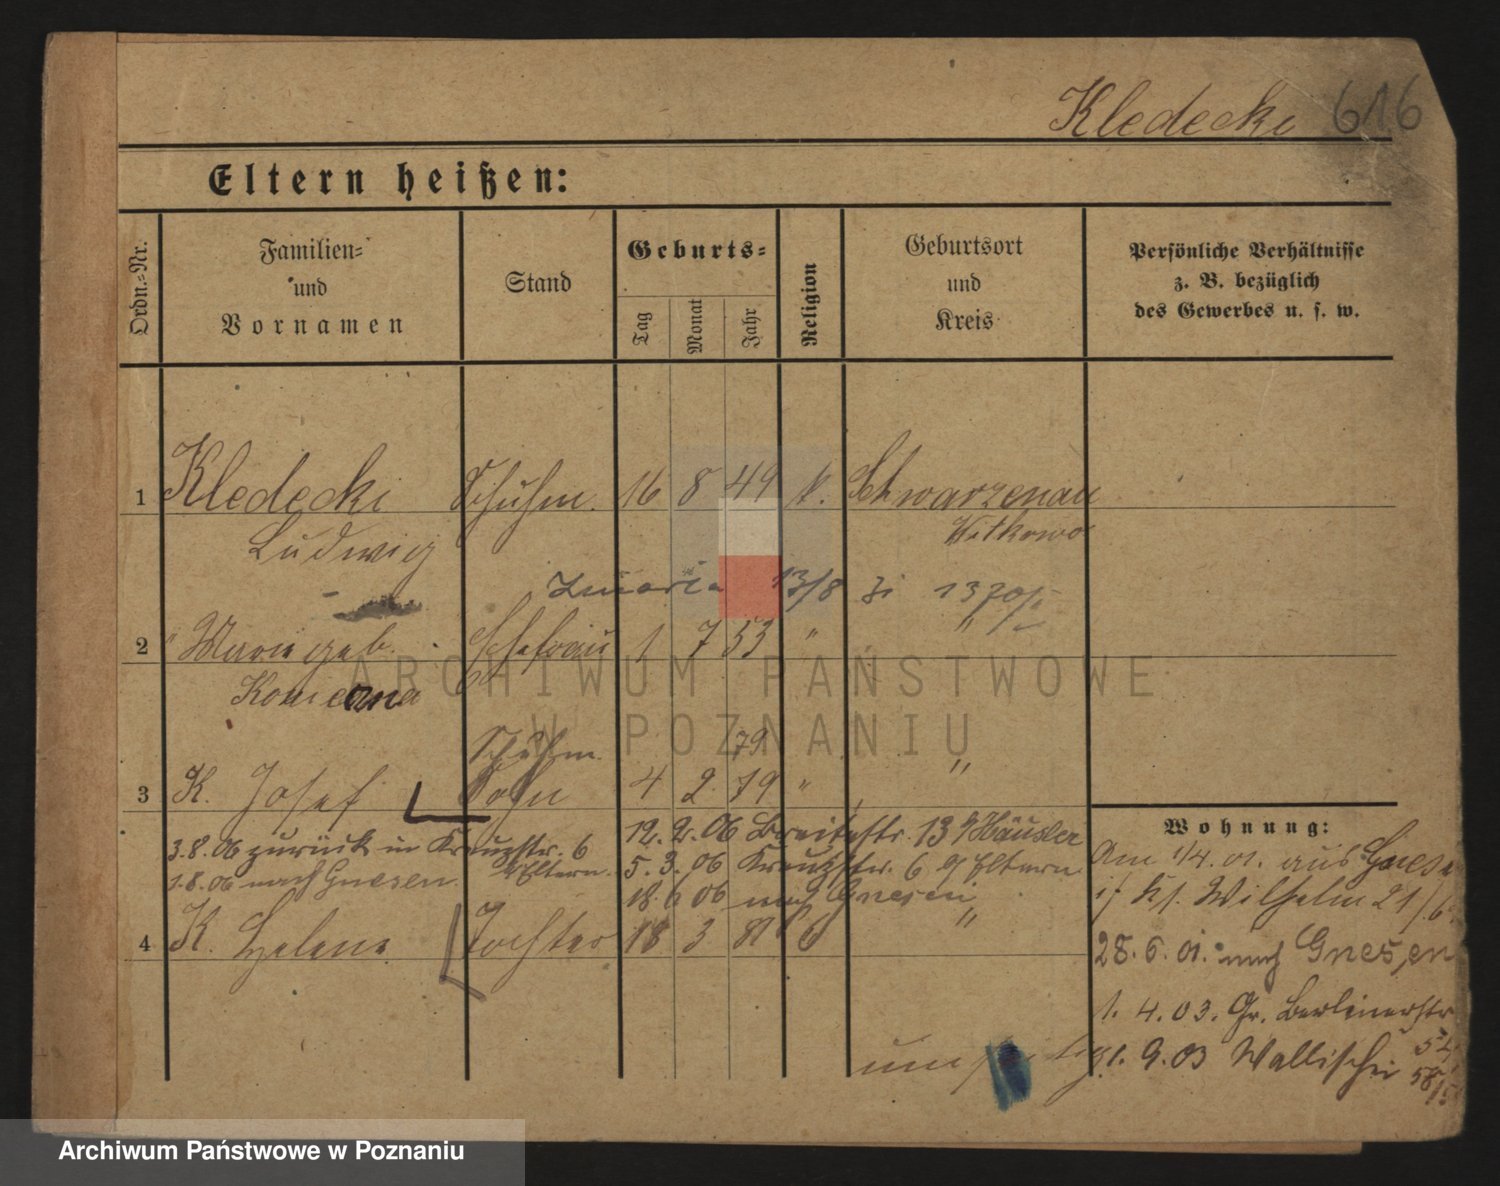 Kledecki 616
Eltern heißen:
Ordn.-Nr.
Familien-
und
Vornamen
Stand
Geburts-
Tag
Monat
Jahr
Religion
Geburtsort
und
Kreis
Persönliche Verhältnisse
z. B. bezüglich
des Gewerbes u. s. w.
1 Kledecki Schuhm. 16 8 49 k. Schwarzenau
Ludwig Witkowo
13/8
2 " Marie geb. Ehefrau 1 7 53 " "
ARCHIWUM PAŃSTWOWE
W POZNANIU
Schuhm. 79
3 K. Josef Sohn 4 2 79 " "
12. 2. 06 Breitestr. 13 b/Häusler
3.8.06 zurück in Kreuzstr. 6 b/Eltern
5. 3. 06 Kreuzstr. 6 b/ Eltern
1.8.06 nach Gnesen.
18. 6 06 nach Gnesen
4 K. Helene Tochter 18 3 81 "
Wohnung:
Am 1/4. 01. aus Gnesen
Wilhelm 21
28. 6. 01. nach Gnesen
1. 4. 03. Gr. Berlinerstr
54
1. 9. 03 Wallischei
58/5
Archiwum Państwowe w Poznaniu